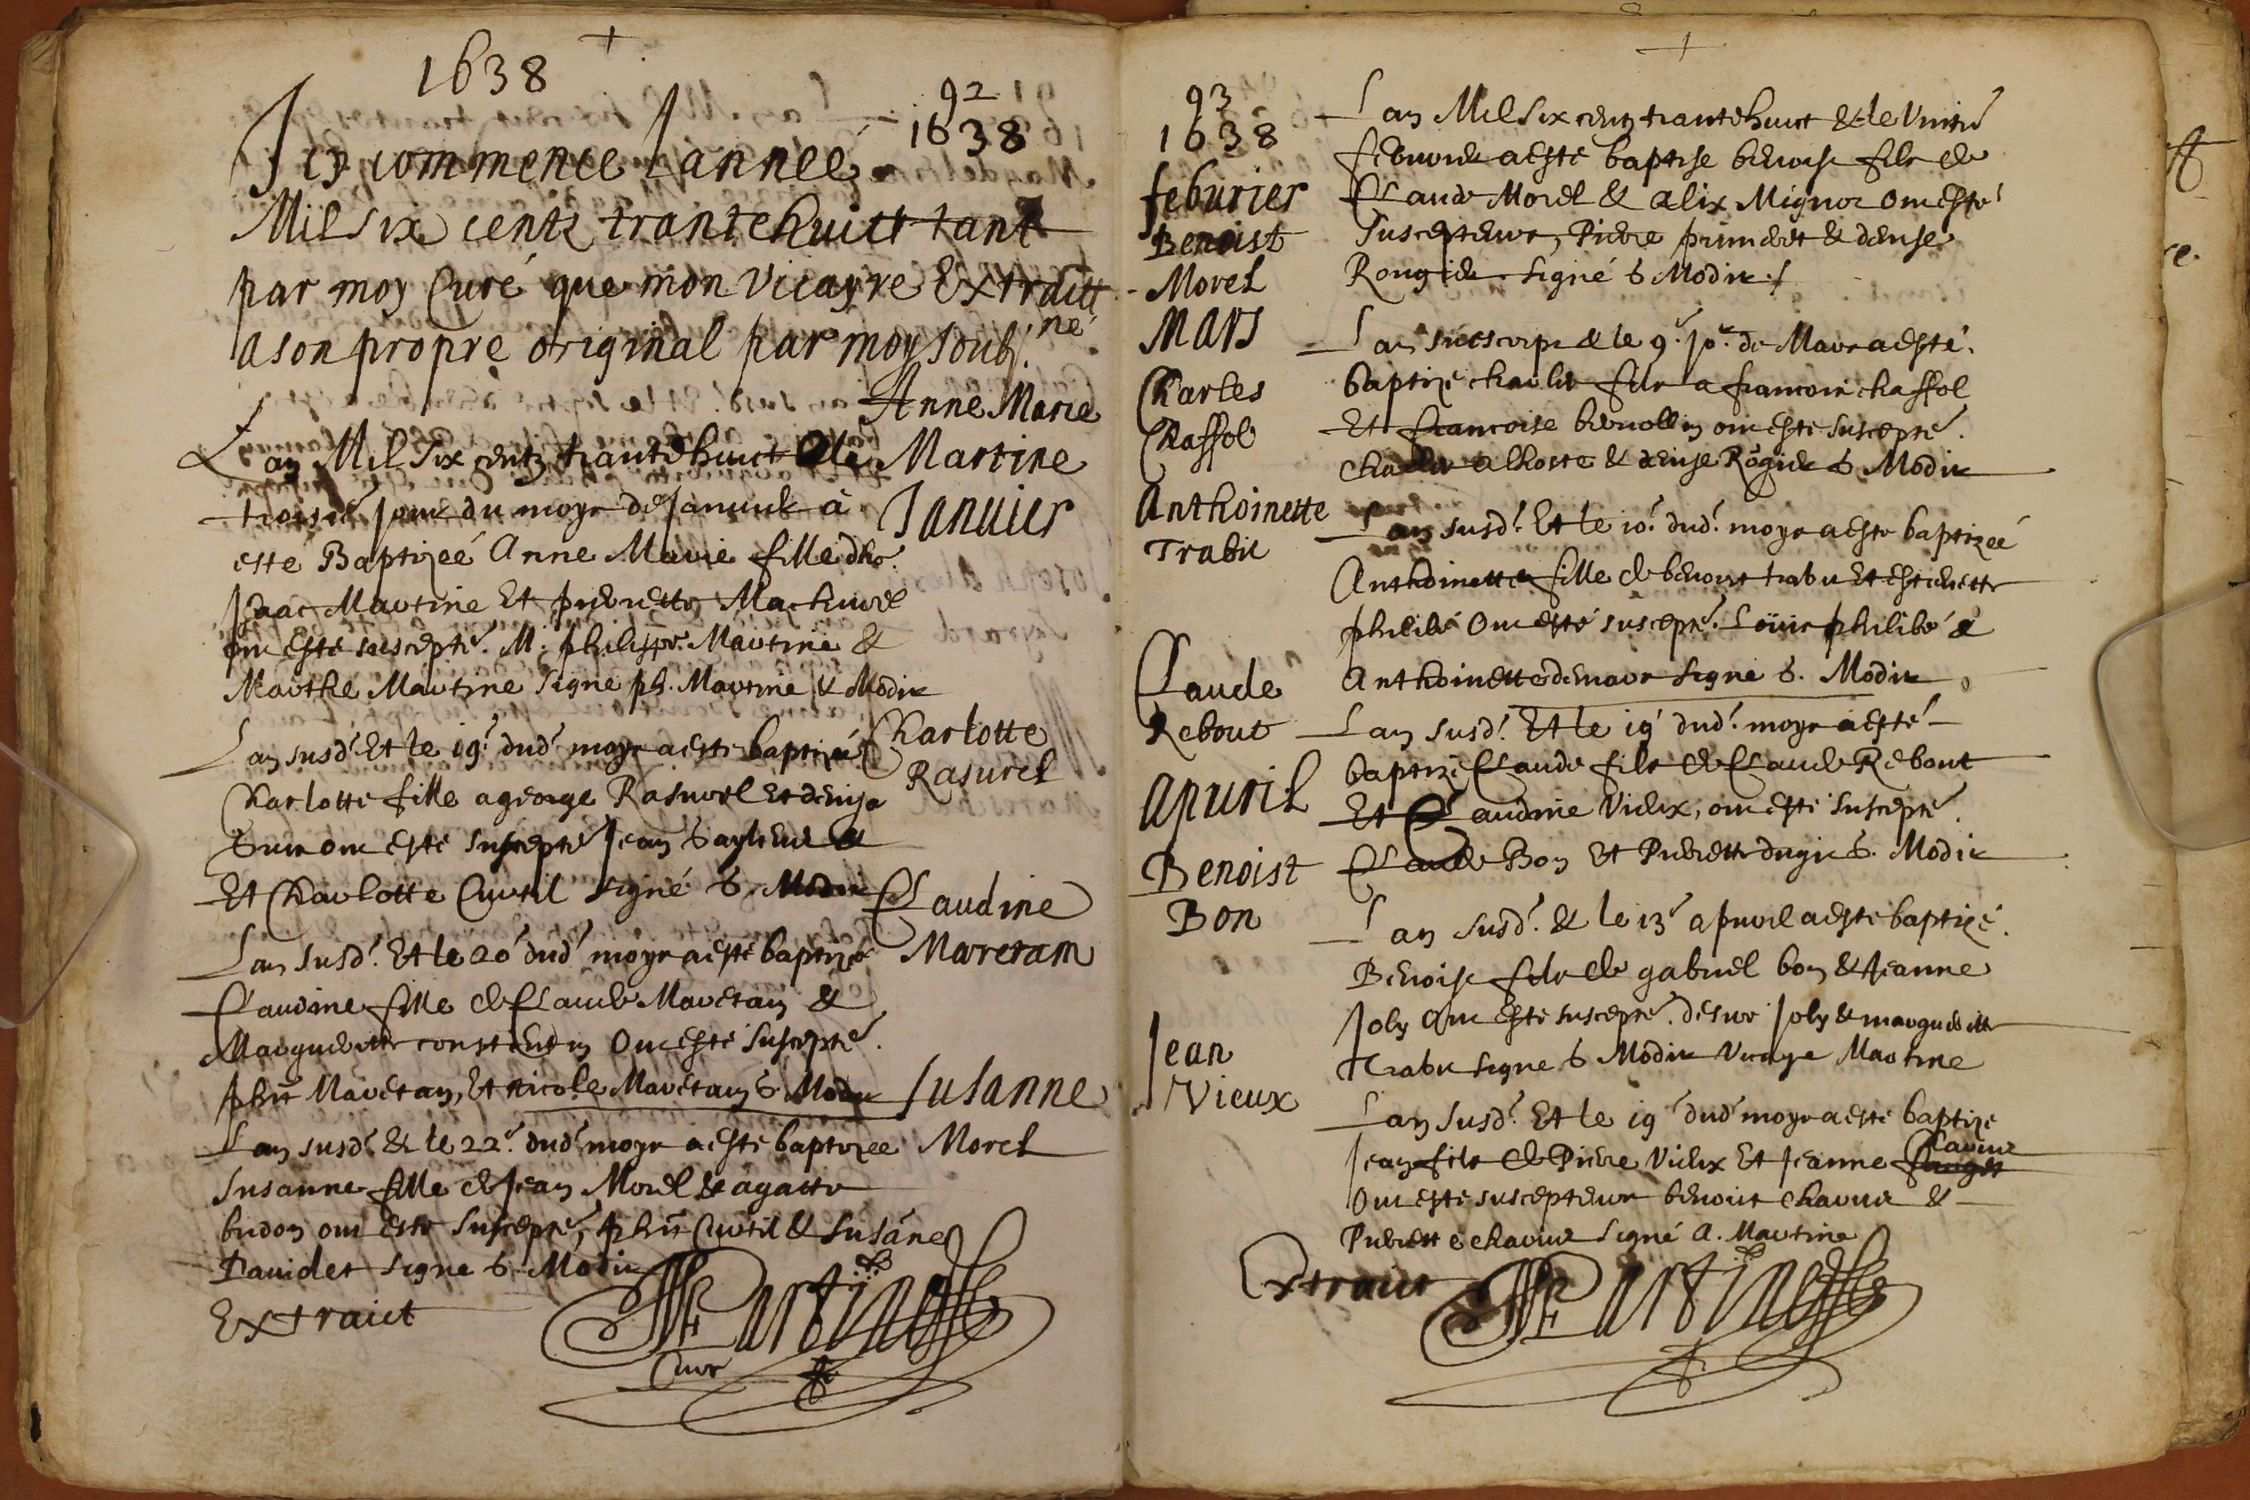 1638
92
1638
Icy commence Lannée
Mil six centz trante huict tant
par moy Curé que mon Vicayre Extraitt
a son propre original par moy soub. né
Anne Marie
Martine
Januier
Lan Mil Six centz trante huict & le
troisie Jour du moys de Januier à
esté Baptizeé Anne Marie fille dho.
Isaac Martine Et pierrette
ont esté suscepte. M. philippe Martine &
Marthe Martine signe ph. Martine & Modin
Charlotte
Rasurel
Lan susd. Et le 19. dud. moys a esté baptizé
Charlotte fille a george Rasurel et denise
ont esté suscepte Jean &
Et Charlotte Curtil signé Modin
Claudine
Maretam
Lan susd. Et le 20 dud moys a esté baptizé
Claudine fille de Claude Maretan &
Marguerite constentin Ont esté suscepte.
phil Maretan, Et Nicole Maretan Modin
Susanne
Morel
Lan susd. & le 22. dud. moys a esté baptizee
Susanne fille de Jean Morel & agathe
budon ont esté suscepte, phil Curtil & Susane
Dauidet signe Modin
Extraict
Martine
Curé
93
1638
feburier
Benoist
Morel
Lan Mil Six centz trante huict & le
feburier a esté baptise benoist fils de
Claude Morel & alix Mignot Ont esté
Suscepteurs, Pierre & denise
signé Modin
Mars
Charles
Chassol
Lan & le 9. Jo. de Mars a esté
baptize charles fils a francois chassol
Et francoise ont esté suscepte.
Charles alhoste & denise Modin
Anthoinette
Trabit
Lan susd. Et le 10. dud. moys a esté baptizeé
Anthoinette fille de benoist Et estienette
philibé Ont esté suscepte. Louis philibé &
Anthoinette signe Modin
Claude
Rebout
Lan susd. Et le 19 dud. moys a esté
baptizé Claude fils de Claude Rebout
Et Claudine Vieux, ont esté suscepte.
Claude Bon Et Pierrette Modin
Apuril
Benoist
Bon
Lan susd. & le 13 apuril a esté baptizé.
Benoist fils de gabriel bon & Jeanne
Joly Ont esté suscepte. Joly & marguerite
signe Modin Vicaye Martine
Jean
Vieux
Lan susd. Et le 19 dud moys a esté baptize
Jean fils de Pierre Vieux Et Jeanne
Ont esté suscepteurs benoist &
Pierrette signé A. Martine
Extraict
Martine